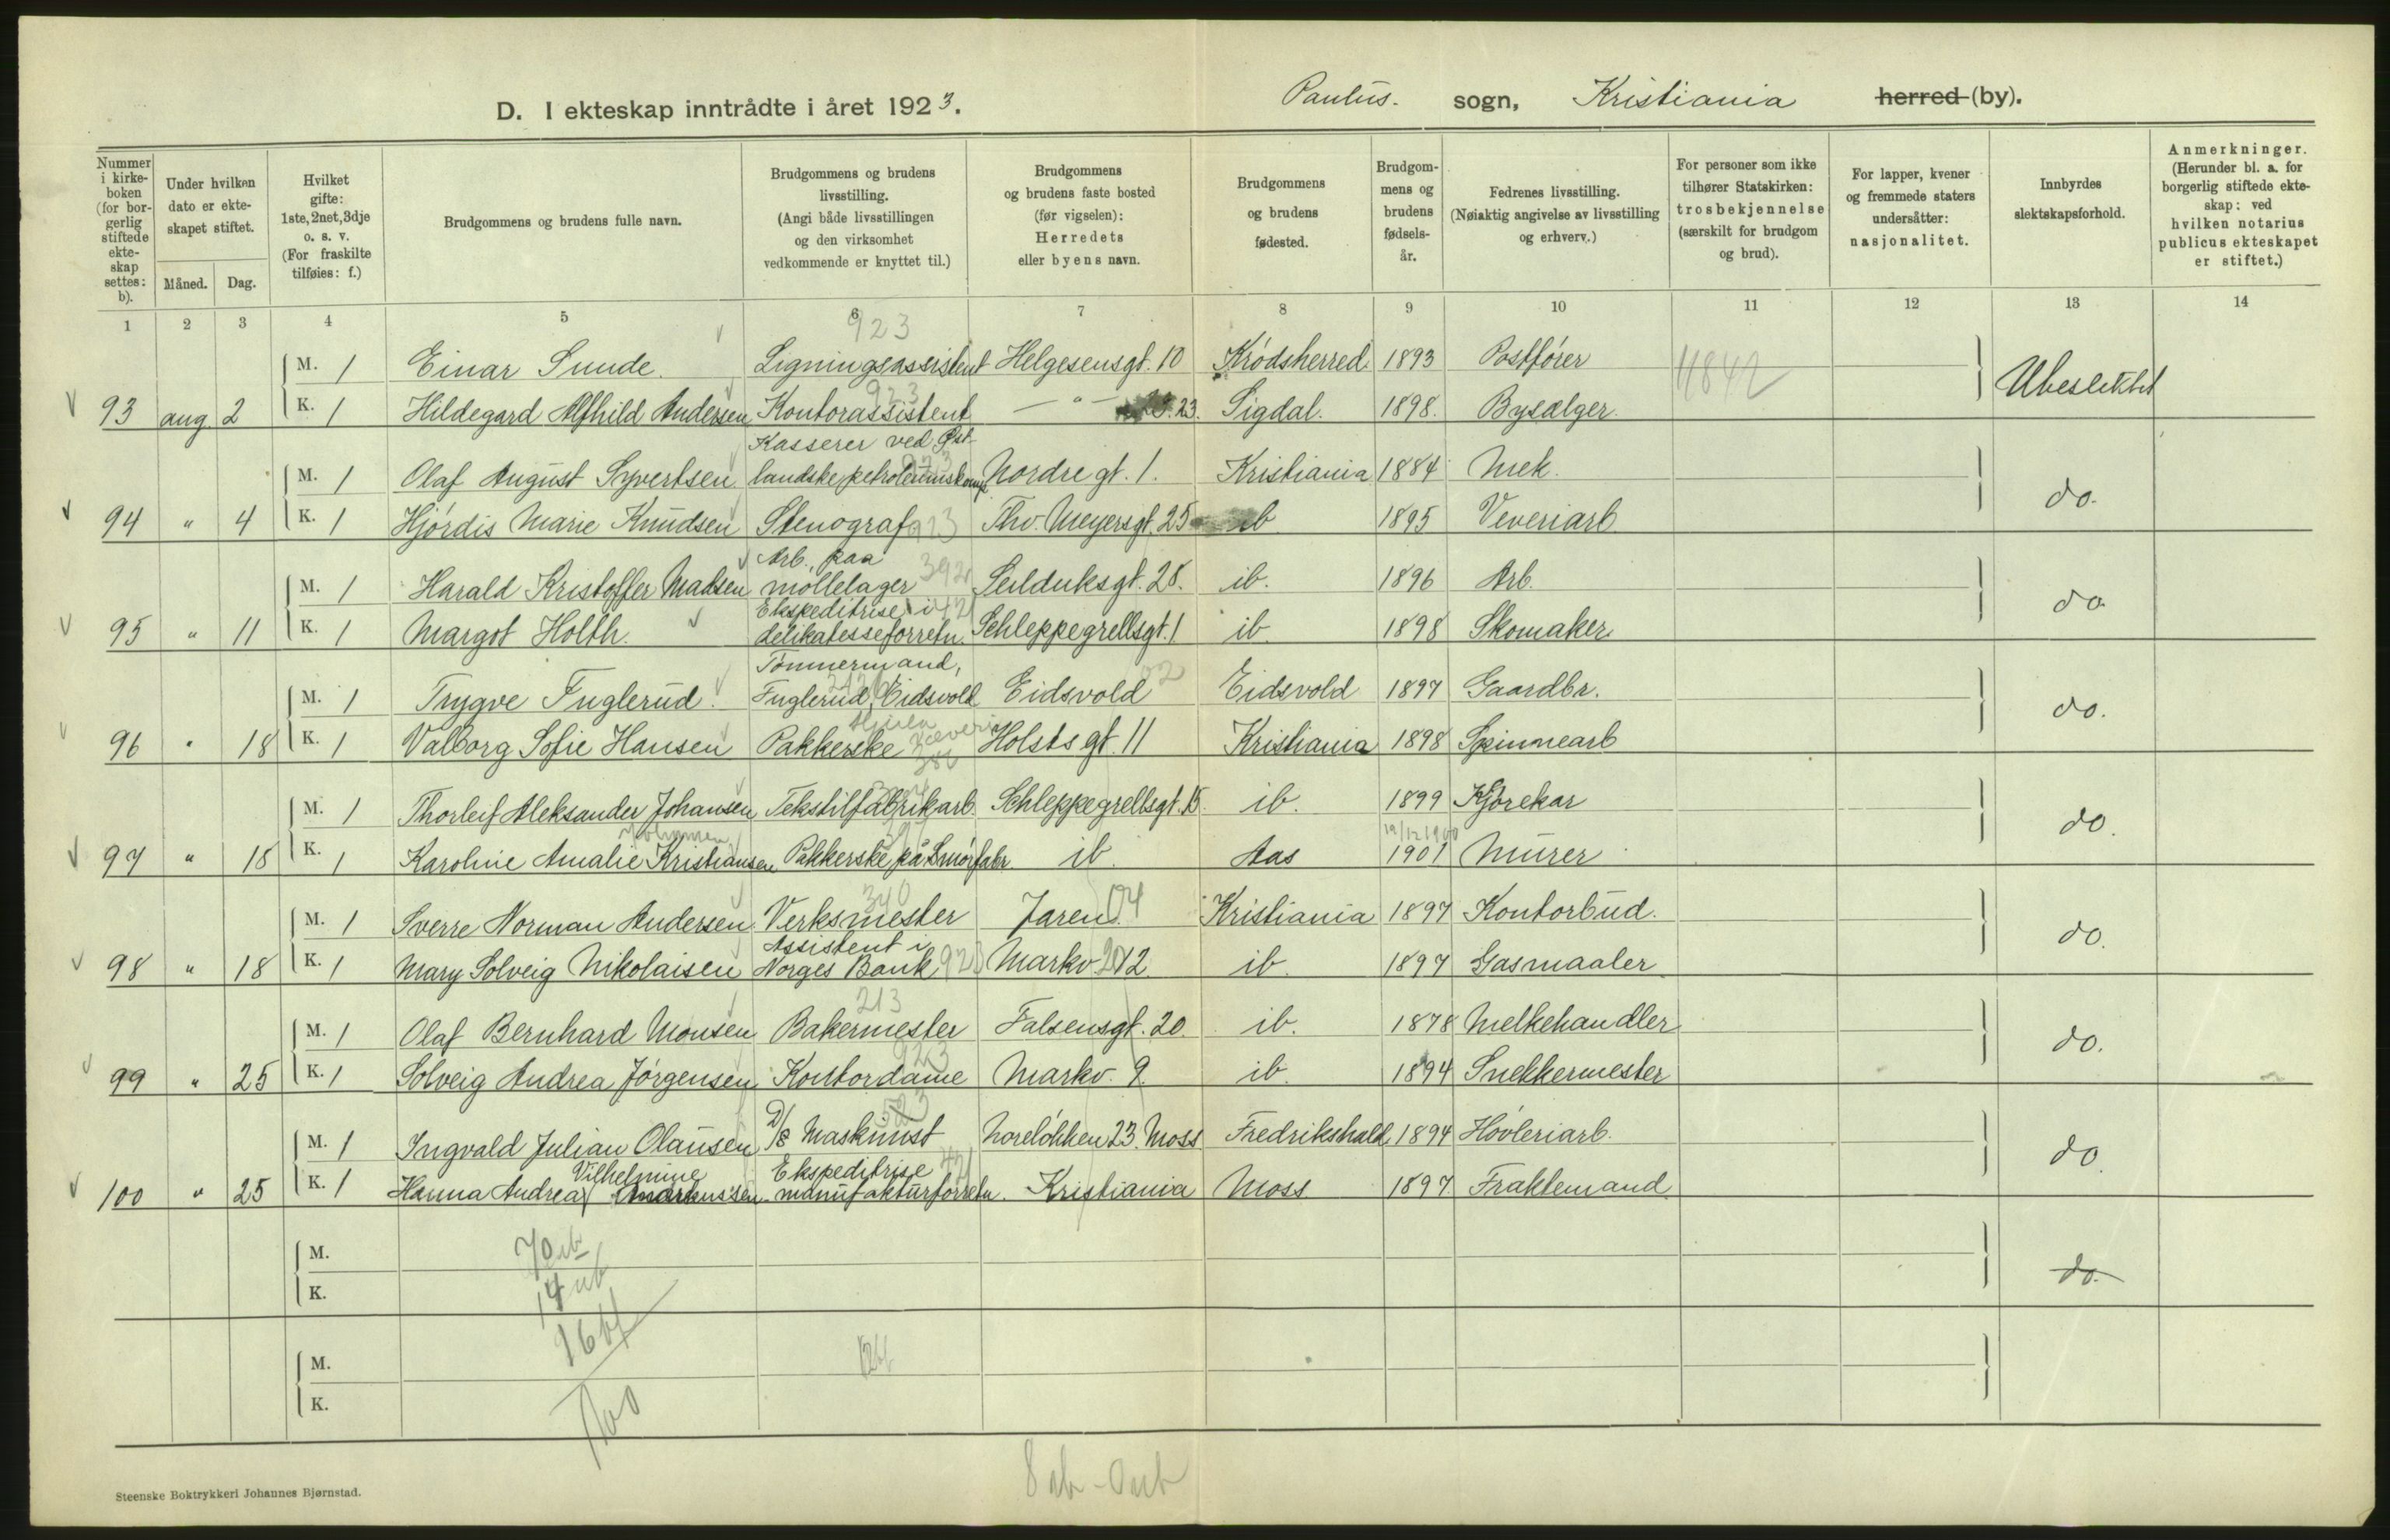 D. I ekteskap inntrådte i året 1923.
Paulus. sogn, Kristiania herred (by).
Nummer i kirkeboken (for borgerlig stiftede ekteskap settes: b).
Under hvilken dato er ekteskapet stiftet.
Måned. Dag.
Hvilket gifte: 1ste, 2net, 3dje o. s. v. (For fraskilte tilføies: f.)
Brudgommens og brudens fulle navn.
Brudgommens og brudens livsstilling. (Angi både livsstillingen og den virksomhet vedkommende er knyttet til.)
Brudgommens og brudens faste bosted (før vigselen): Herredets eller byens navn.
Brudgommens og brudens fødested.
Brudgommens og brudens fødselsår.
Fedrenes livsstilling. (Nøiaktig angivelse av livsstilling og erhverv.)
For personer som ikke tilhører Statskirken: trosbekjennelse (særskilt for brudgom og brud).
For lapper, kvener og fremmede staters undersåtter: nasjonalitet.
Innbyrdes slektskapsforhold.
Anmerkninger. (Herunder bl. a. for borgerlig stiftede ekteskap: ved hvilken notarius publicus ekteskapet er stiftet.)
1 2 3 4 5 6 7 8 9 10 11 12 13 14
923
M. 1 Einar Sunde. Ligningsassistent Helgesensgt. 10 Krödsherred 1893 Postförer 4842 Ubeslektet
923
93 aug. 2 K. 1 Hildegard Alfhild Andersen Kontorassistent — " — 23. Sigdal. 1898. Bysælger.
Kasserer ved Øst-
M. 1 Olaf August Syvertsen landske petroleumskomp. Nordre gt. 1. Kristiania 1884 Mek. do.
94 " 4 K. 1 Hjördis Marie Knudsen Stenograf 923 Thv. Meyersgt. 25 ib 1895 Veveriarb
Arb. paa
M. 1 Harald Kristoffer Madsen möllelager 392 Seilduksgt. 28. ib. 1896 Arb. do.
Ekspeditrise i
95 " 11 K. 1 Margot Holth. delikatesseforretn. Schleppegrellsgt. 1 ib. 1898 Skomaker
Tömmermand,
M. 1 Trygve Fuglerud. Fuglerud, Eidsvold Eidsvold Eidsvold 1897 Gaardbr. do.
Hjula Væveri
96 " 18 K. 1 Valborg Sofie Hansen Pakkerske Holsts gt. 11 Kristiania 1898 Spinnearb
M. 1 Thorleif Aleksander Johansen Tekstilfabrikarb. Schleppegrellsgt. 15. ib. 1899 Kjörekar do.
19/12 1900
97 " 18 K. 1 Karoline Amalie Kristiansen Pakkerske på Smörfabr. ib. Aas 1901 Murer
340
M. 1 Sverre Norman Andersen Verksmester Jaren 04 Kristiania 1897 Kontorbud. do.
Assistent i
98 " 18 K. 1 Mary Solveig Nikolaisen Norges Bank 923 Markv. 12. ib. 1897 Gasmaaler
213
M. 1 Olaf Bernhard Monsen Bakermester Falsensgt. 20. ib. 1878 Melkehandler do.
923
99 " 25 K. 1 Solveig Andrea Jörgensen Kontordame Markv. 9. ib. 1894 Snekkermester
M. 1 Ingvald Julian Olausen D/S Maskinist Noreløkken 23. Moss Fredrikshald 1894 Hövleriarb. do.
Vilhelmine Ekspeditrise
100 " 25 K. 1 Hanna Andrea Markussen manufakturforretn. Kristiania Moss 1897 Fraktemand
M.
K. do.
M.
K.
Steenske Boktrykkeri Johannes Bjørnstad.